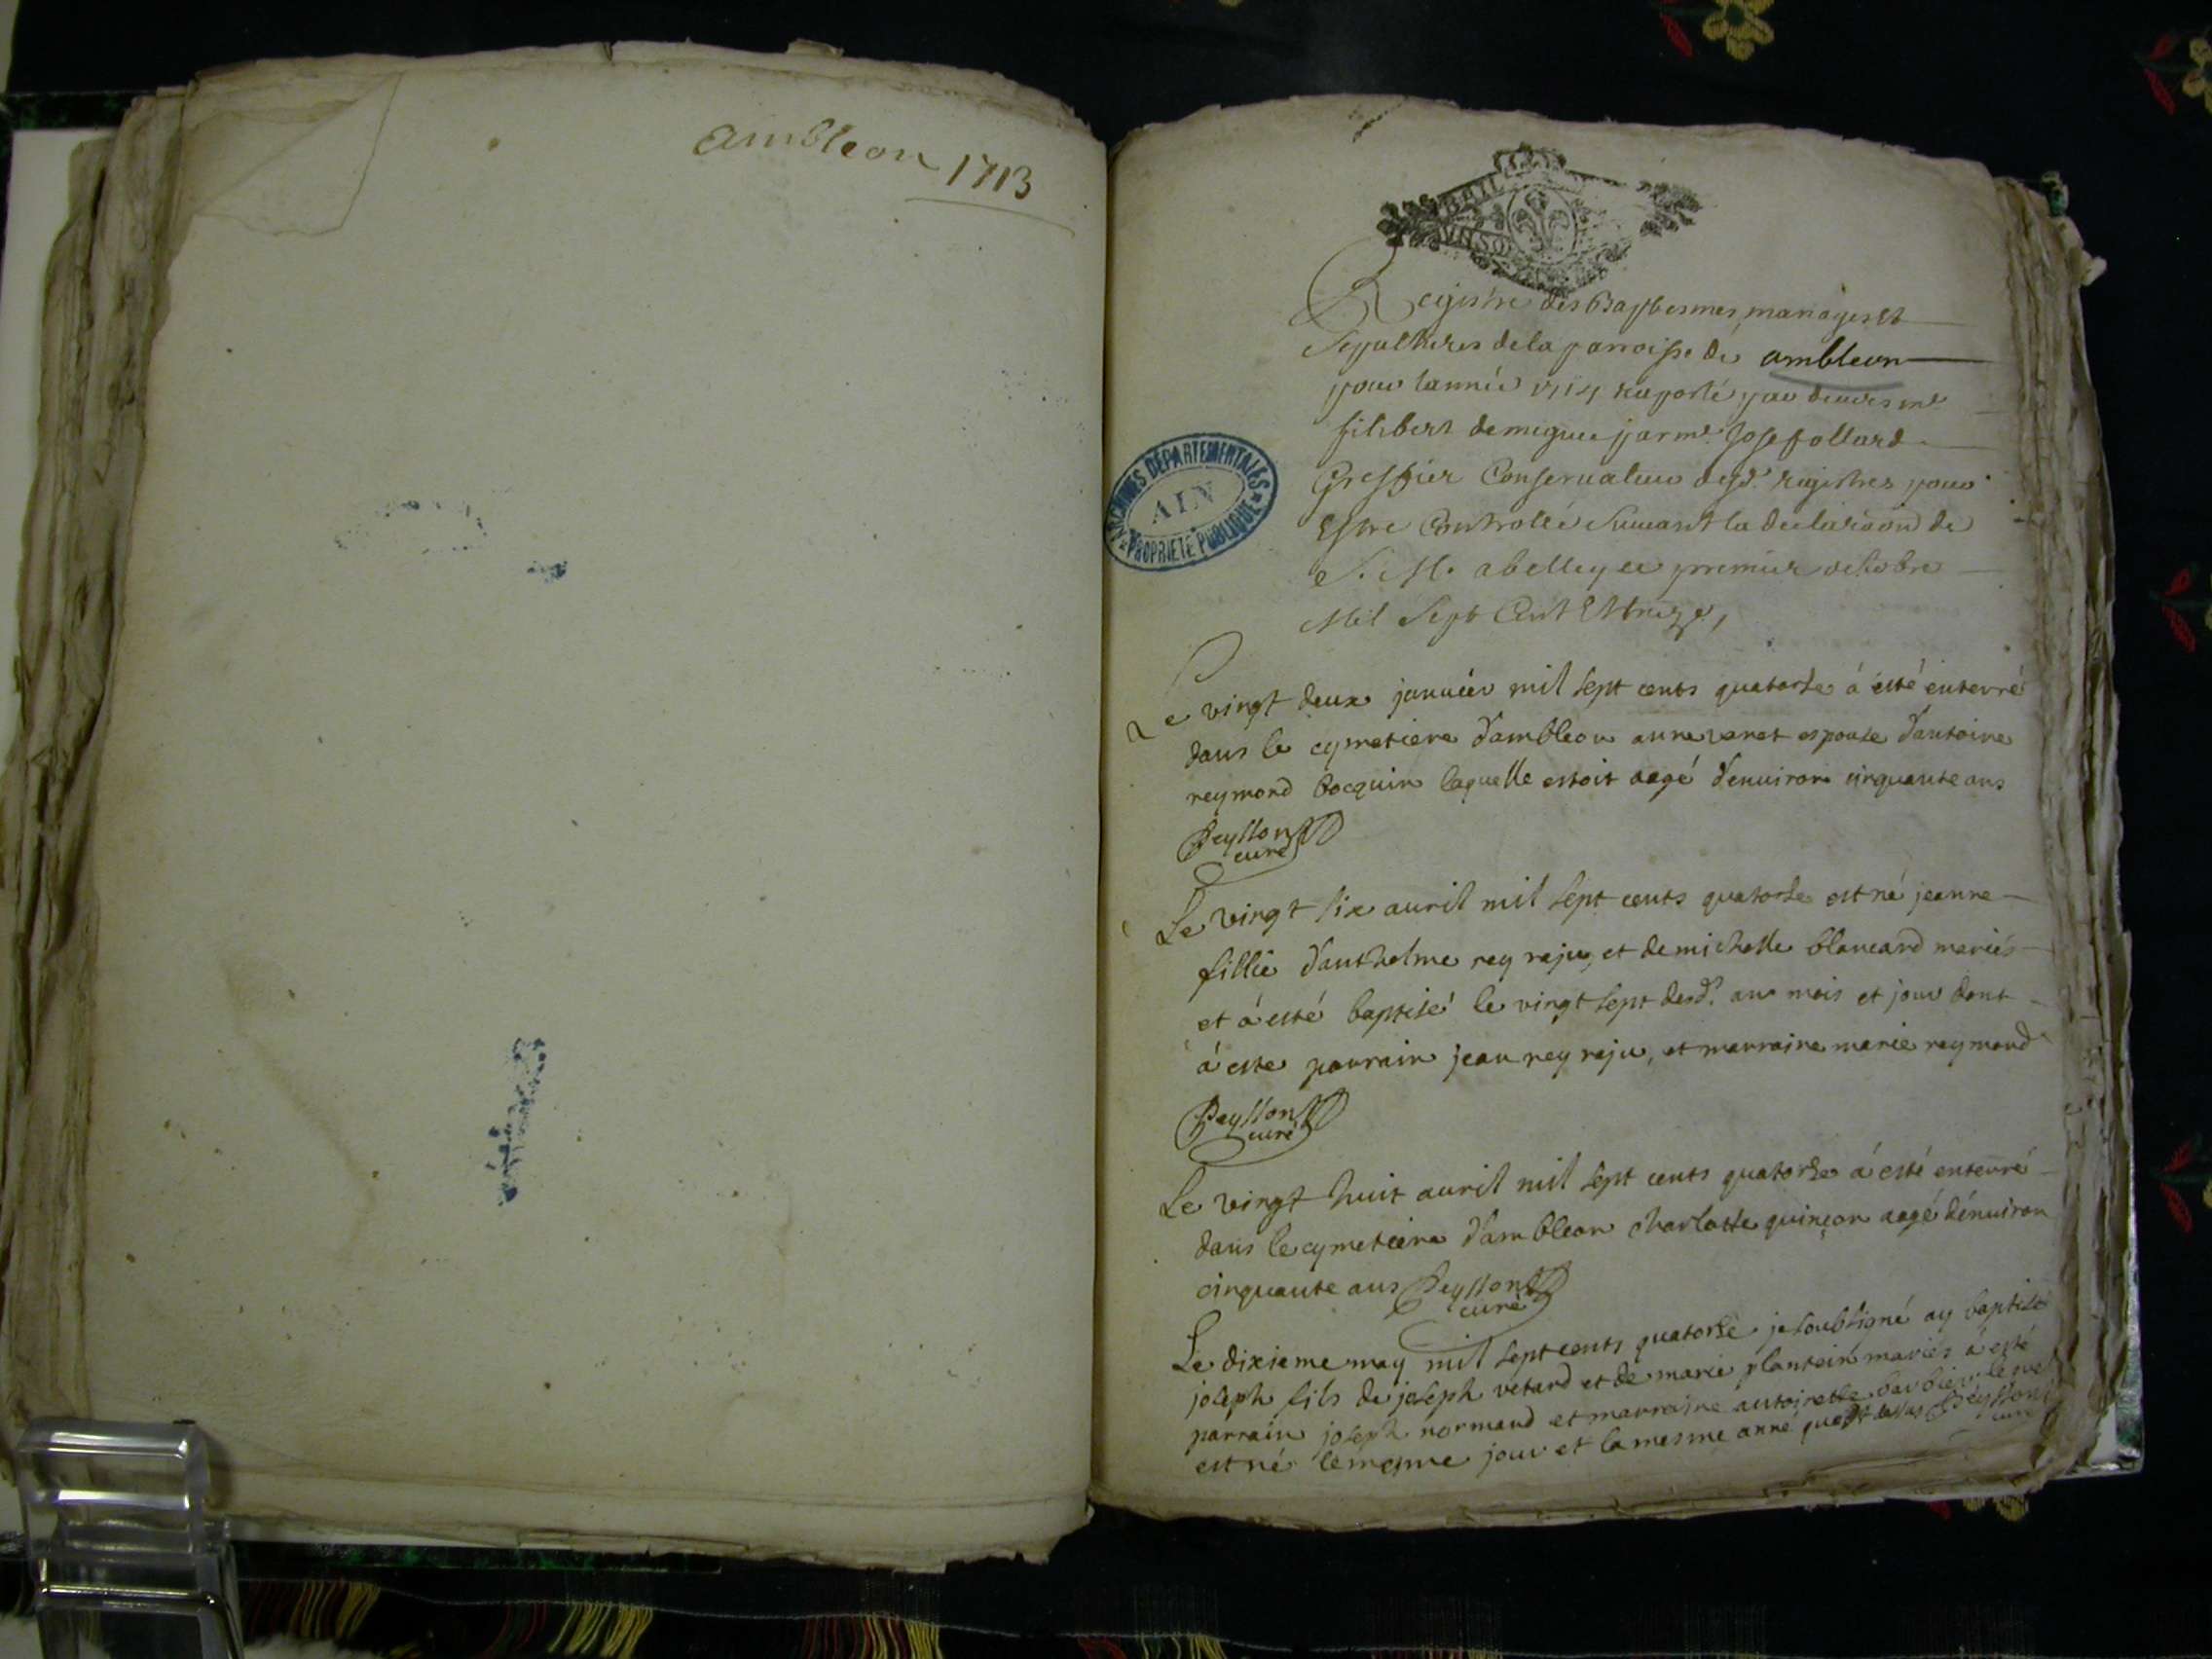 ambleon 1713
Registre des Baptesmes, mariages et
Sepultures de la parroisse de ambleon
pour lannée 1714 raporté par devers me
filibert demigue par me Josep ollard
Greffier Conservateur desd. registres pour
Estre Controllé Suivant la declaraon de
S. M. a belley ce premier octobre
Mil Sept Cent Et treize,
ARCHIVES DEPARTEMENTALES
AIN
PROPRIETE PUBLIQUE
Le vingt deux januier mil sept cents quatorse á esté enterré
dans le cymetiere d'ambleon anne venet espouse d'antoine
reymond bocquin laquelle estoit aagé d'enuiron cinquante ans
Peysson
curé
Le vingt six auril mil sept cents quatorse est né jeanne
fillie d'anthelme rey raju, et de michelle blancard mariés
et á esté baptisé le vingt sept desd. an mois et jour dont
á este parrain jean rey raju, et marraine marie reymond
Peysson
curé
Le vingt huit auril mil sept cents quatorse á esté enterré
dans le cymetiere d'ambleon charlotte quinçon aagé d'enuiron
cinquante ans Peysson
curé
Le dixieme may mil sept cents quatorse je soubsigné ay baptisé
joseph fils de joseph vetard et de marie plantein mariés á esté
parrain joseph normand et marraine antoinette barbier le quel
est né le mesme jour et la mesme anné que dessus Peysson
curé